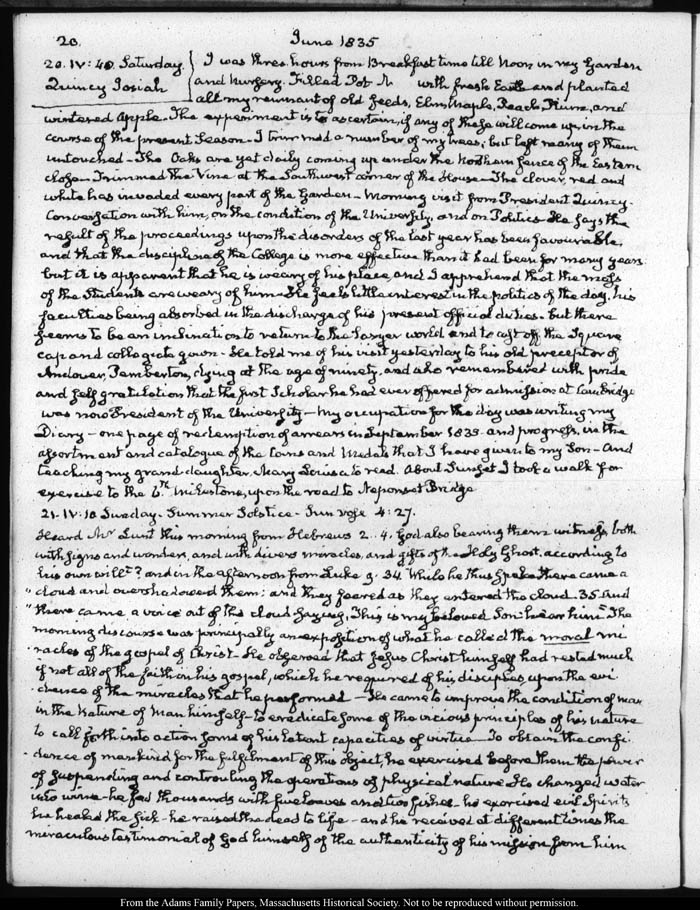 20.
June 1835
20. IV: 40. Saturday. I was three hours from Breakfast time till Noon in my Garden
Quincy Josiah and Nursery. Filled Pot N with fresh Earth and planted
all my remnant of old seeds, Elm, Maple, Peach, Plum, and
wintered Apple. The experiment is to ascertain, if any of these will come up in the
course of the present Season. I trimmed a number of my trees; but left many of them
untouched. The Oaks are yet daily coming up under the Northern fence of the Eastern
close. Trimmed the Vine at the Southwest corner of the House. The clover, red and
white has invaded every part of the Garden. Morning visit from President Quincy.
Conversation with him, on the condition of the University, and on Politics. He says the
result of the proceedings upon the disorders of the last year has been favourable,
and that the discipline of the College is more effective than it had been for many years
but it is apparent that he is weary of his place, and I apprehend that the mass
of the Students are weary of him. He feels little interest in the politics of the day, his
faculties being absorbed in the discharge of his present official duties. But there
seems to be an inclination to return to the larger world and to cast off the Square
cap and collegiate gown. He told me of his visit yesterday to his old preceptor of
Andover, Pemberton, dying at the age of ninety, and who remembered with pride
and self gratulation that the first Scholar he had ever offered for admission at Cambridge
was now President of the University — My occupation for the day was writing my
Diary — one page of redemption of arrears in September 1833 and progress, in the
assortment and catalogue of the Coins and Medals that I have given to my Son — And
teaching my grand-daughter Mary Louisa to read. About Sunset I took a walk for
exercise to the 6th Milestone, upon the road to Neponset Bridge
21. IV: 10 Sunday. Summer Solstice. Sun rose 4:27.
Heard Mr Lunt this morning from Hebrews 2. 4. God also bearing them witness, both
with signs and wonders, and with divers miracles, and gifts of the Holy Ghost, according to
his own will? and in the afternoon from Luke 9. 34. While he thus spake there came a
" cloud and overshadowed them; and they feared as they entered the cloud. 35. And
" there came a voice out of the cloud saying, This is my beloved Son: hear him. The
morning discourse was principally an exposition of what he called the moral mi
racles of the gospel of Christ. He observed that Jesus Christ himself had rested much
if not all of the faith in his gospel, which he required of his disciples, upon the evi
dence of the miracles that he performed — He came to improve the condition of man
in the Nature of Man himself — to eradicate some of the vicious principles of his nature
to call forth into action some of his latent capacities of virtue — To obtain the confi
dence of mankind for the fulfilment of this object, he exercised before them the power
of suspending and controuling the operations of physical nature. He changed water
into wine — he fed thousands with five loaves and two fishes — he exorcised evil Spirits
he healed the sick — he raised the dead to life — and he received at different times the
miraculous testimonial of God himself of the authenticity of his mission from him
From the Adams Family Papers, Massachusetts Historical Society. Not to be reproduced without permission.